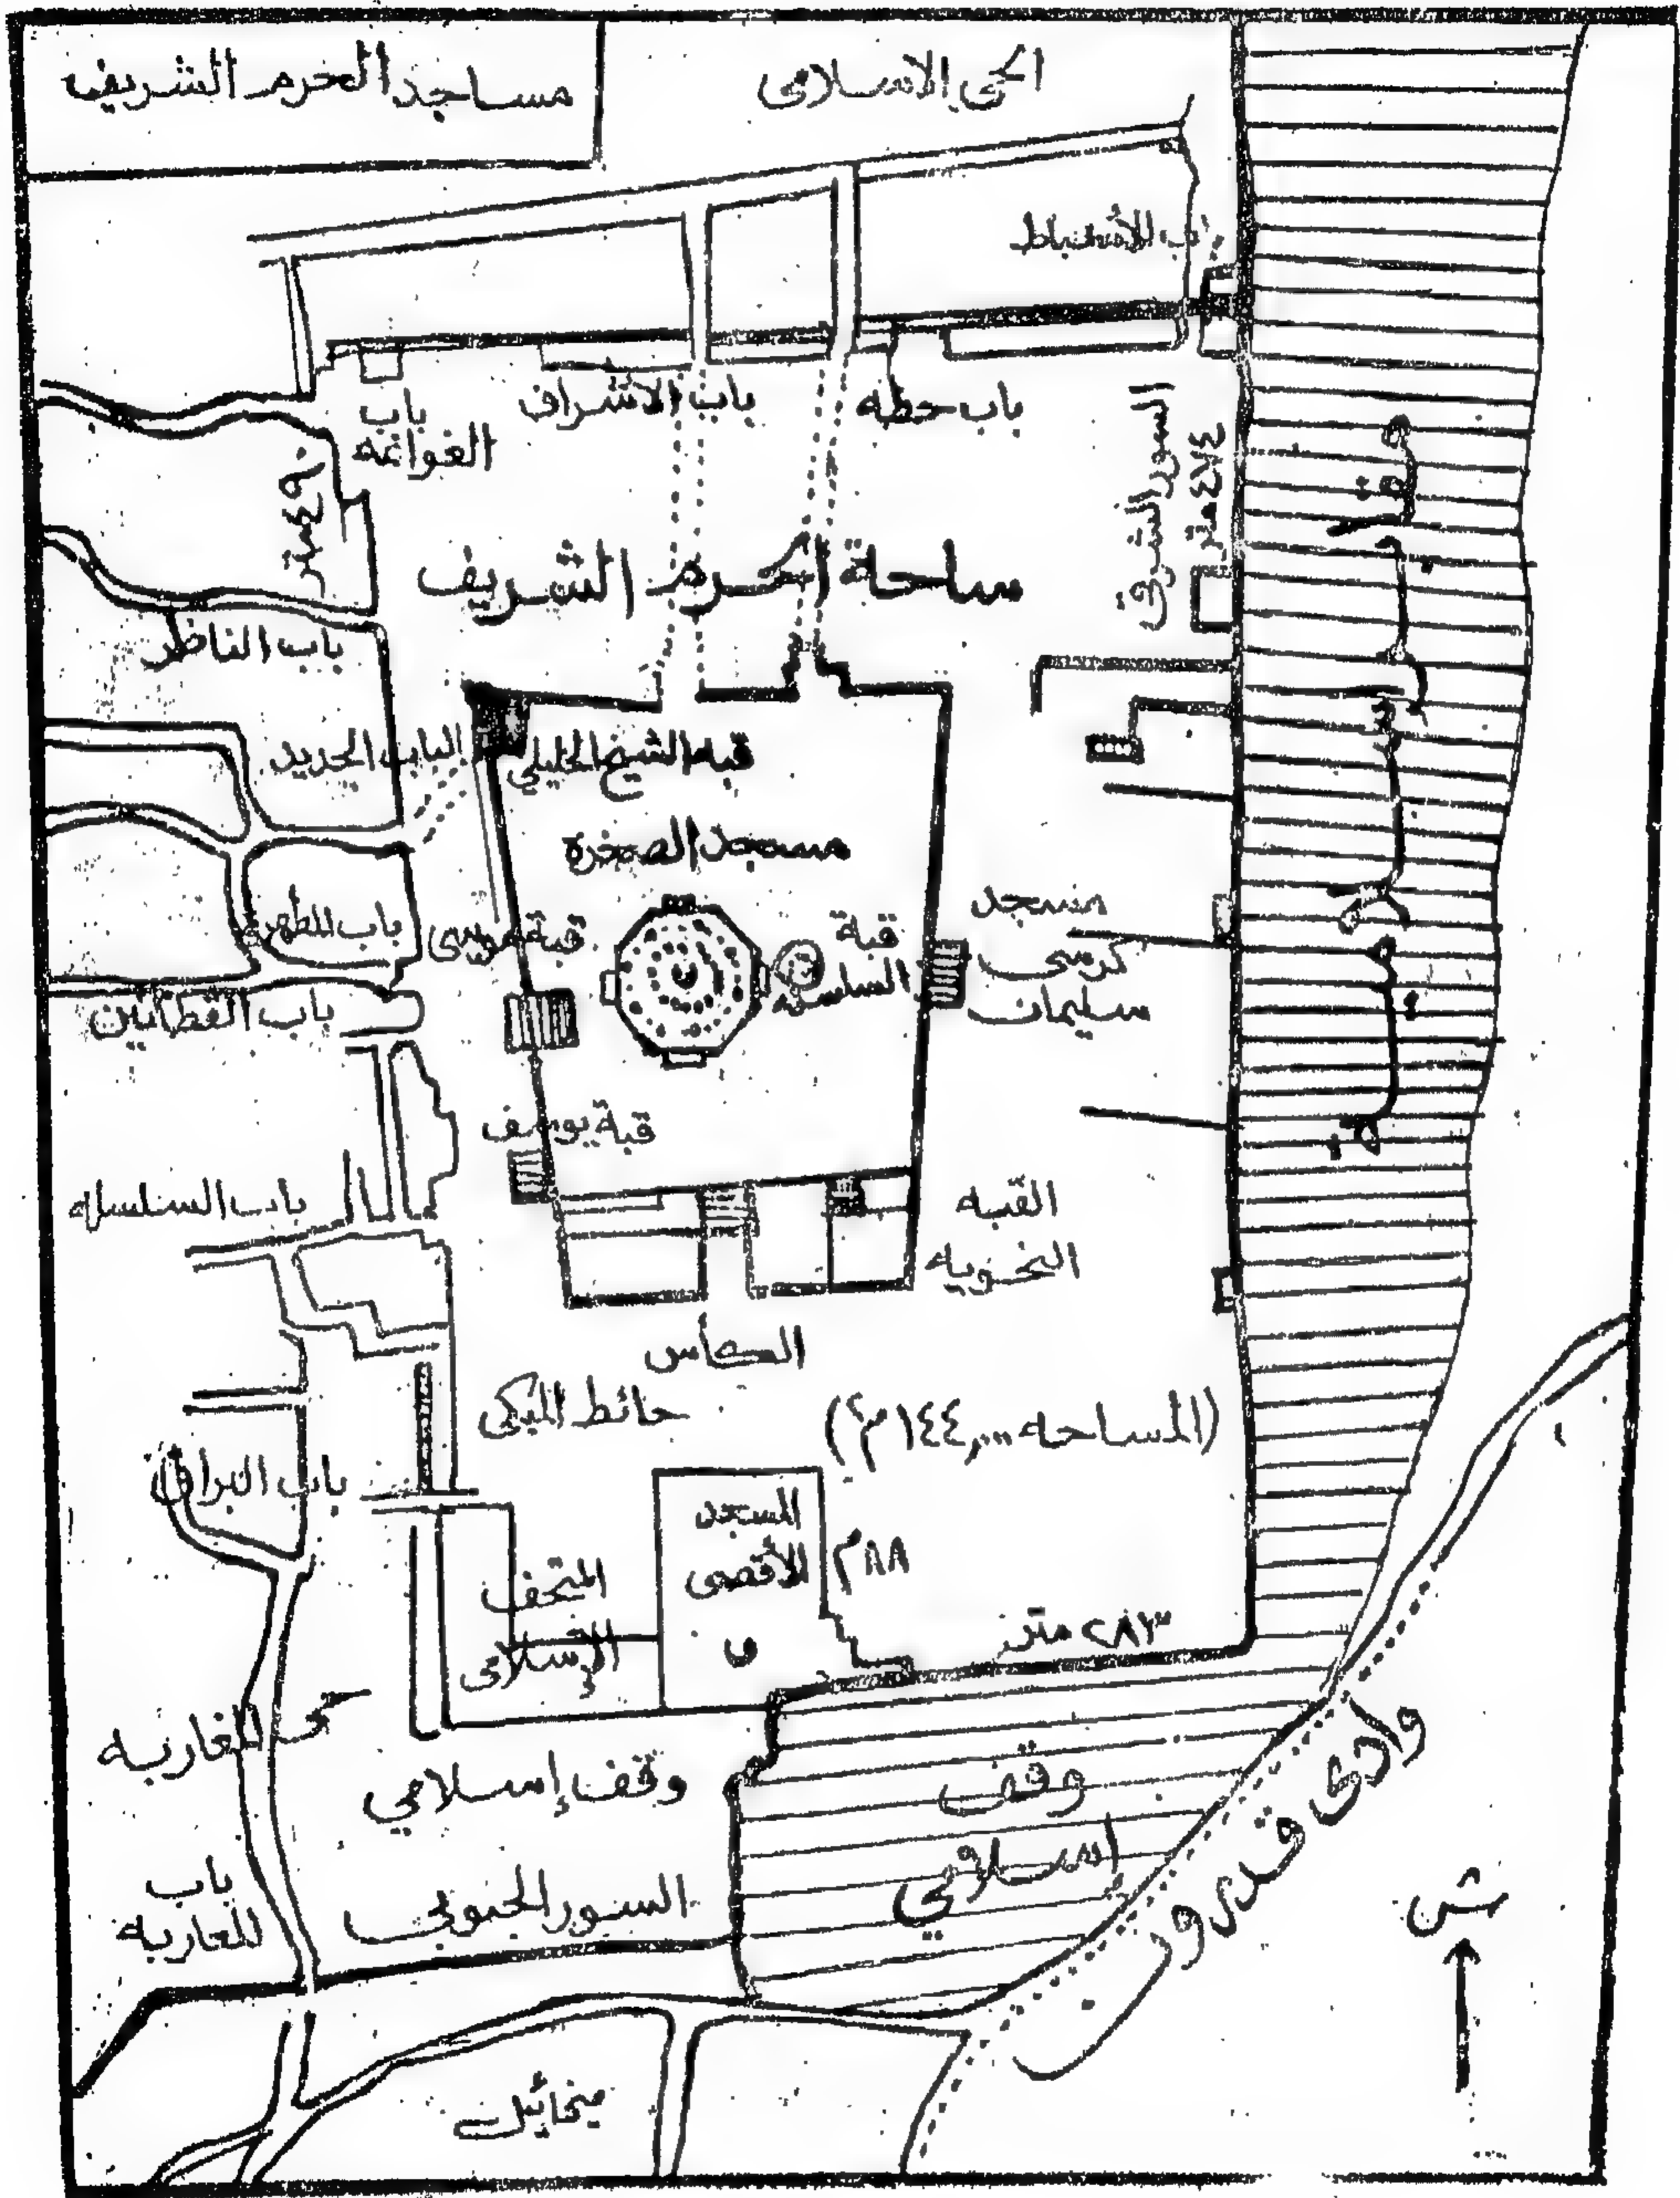 مساجد الحرم الشريف
الحي الاسلامى
باب الأسباط
باب حطه
باب الاشراف
باب
الغوانمه
السور الشرقى
٤٧٤ متر
٤٩٠ متر
ساحة الحرم الشريف
باب الناظر
الباب الحديد
قبة الشيخ الخليلي
مسجد الصخرة
باب المطهره
قبة موسى
قبة
السلسله
مسجد
كرسى
سليمان
باب القطانين
قبة يوسف
باب السلسله
القبه
النحويه
الكأس
حائط المبكى
(المساحه ١٤٤,٠٠٠ م٢)
باب البراق
المسجد
الأقصى
٨٨م
المتحف
الإسلامى
٢٨٣ متر
حى المغاربه
وقف إسلامي
وقف
اسلامي
وادى قدرون
باب
المغاربه
السور الجنوبى
ش